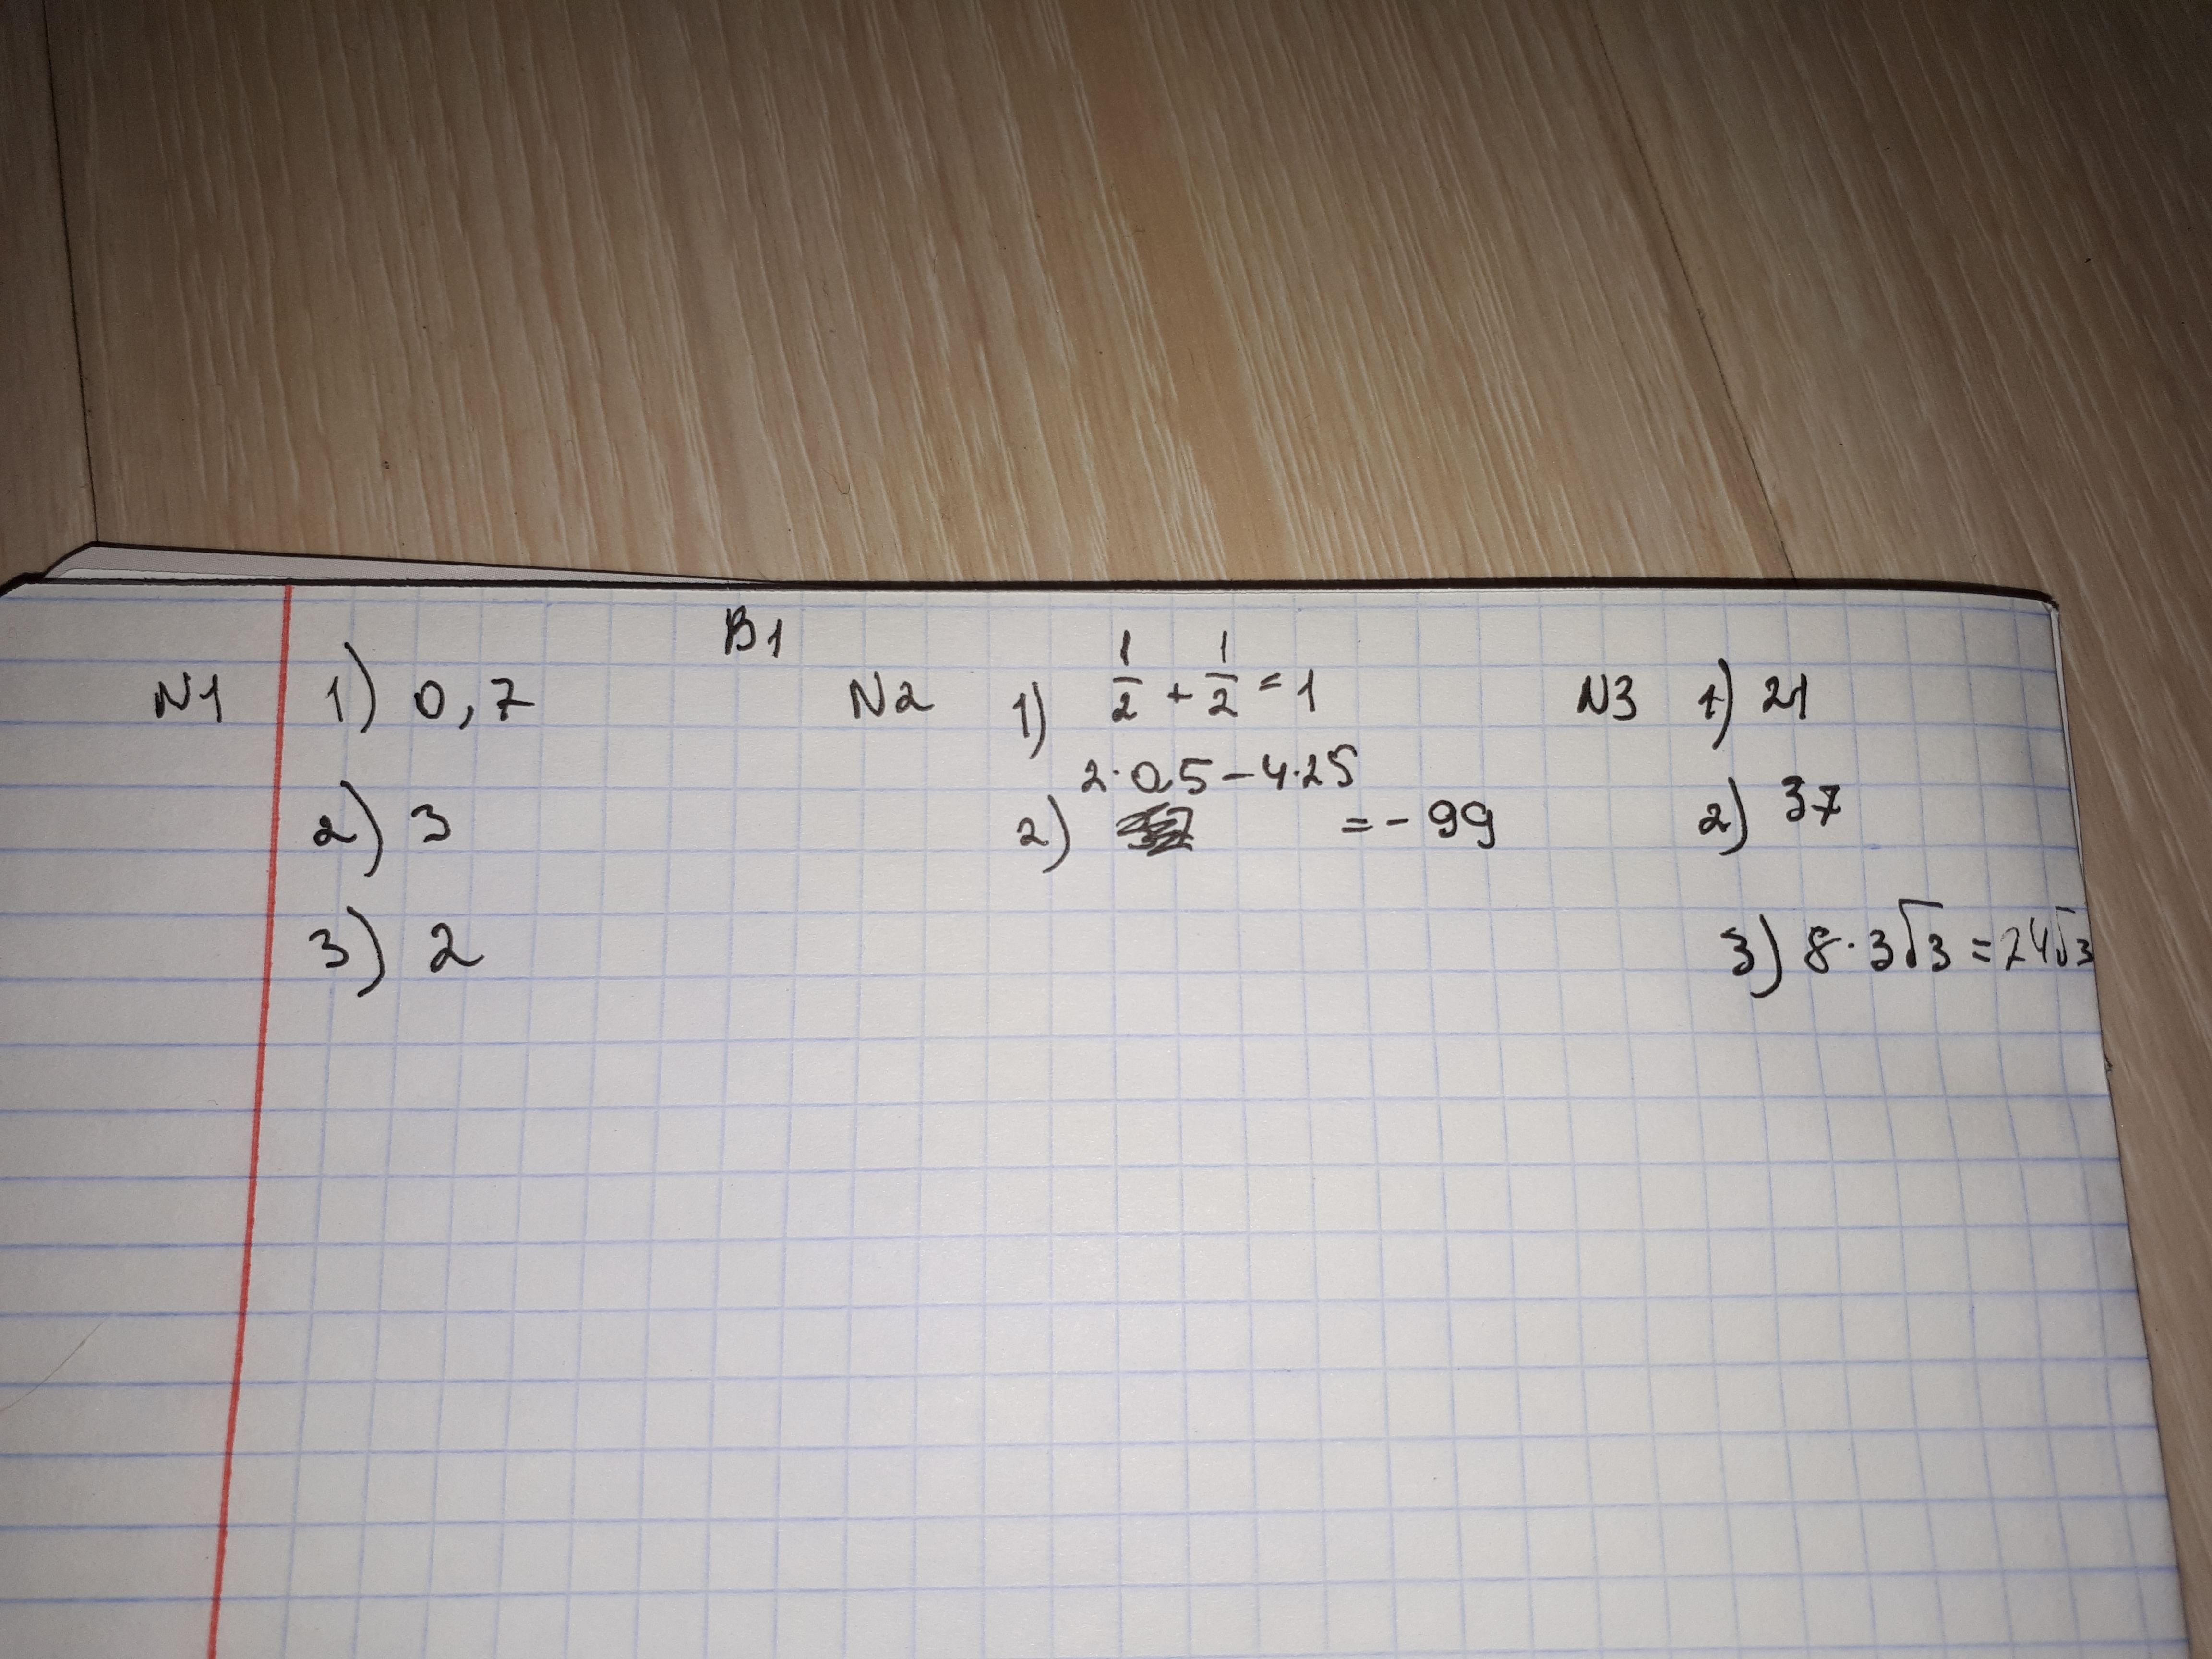 B1
N1 1) 0,7
2) 3
3) 2
N2 1) 1/2 + 1/2 = 1
2) 2·0,5 – 4·25 = - 99
N3 1) 21
2) 37
3) 8·3√3 = 24√3